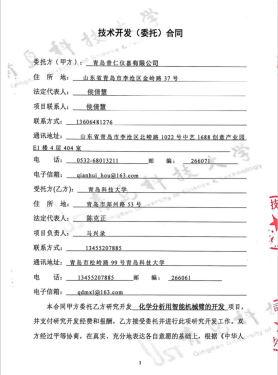 技术开发（委托）合同
委托方（甲方）： 青岛普仁仪器有限公司
住 所 地： 山东省青岛市李沧区金岭路 37 号
法定代表人： 侯倩慧
项目联系人： 侯倩慧
联系方式： 13606481276
通讯地址： 山东省青岛市李沧区北崂路 1022 号中艺 1688 创意产业园
E1 楼 4 层 404 室
电 话： 0532-68013211 邮 编： 266071
电子信箱： qianhui_hou@163.com
受托方(乙方)： 青岛科技大学
住 所 地： 青岛市郑州路 53 号
法定代表人： 陈克正
项目负责人： 马兴录
联系方式： 13455207885
通讯地址： 青岛市松岭路 99 号青岛科技大学
电话： 13455207885 邮 编： 266061
电子信箱： qdmxl@163.com
本合同甲方委托乙方研究开发 化学分析用智能机械臂的开发 项目，
并支付研究开发经费和报酬，乙方接受委托并进行此项研究开发工作。双
方经过平等协商，在真实、充分地表达各自意愿的基础上，根据《中华人
1